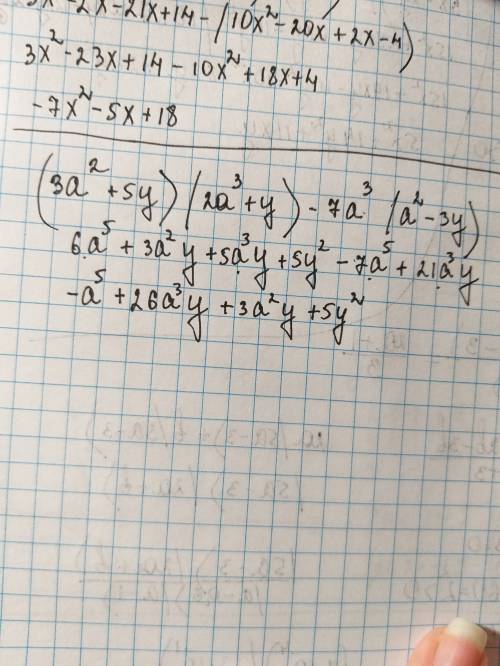 3x² - 2x - 21x + 14 - (10x² - 20x + 2x - 4)
3x² - 23x + 14 - 10x² + 18x + 4
- 7x² - 5x + 18
(3a² + 5y) (2a³ + y) - 7a³ (a² - 3y)
6a⁵ + 3a²y + 5a³y + 5y² - 7a⁵ + 21a³y
- a⁵ + 26a³y + 3a²y + 5y²